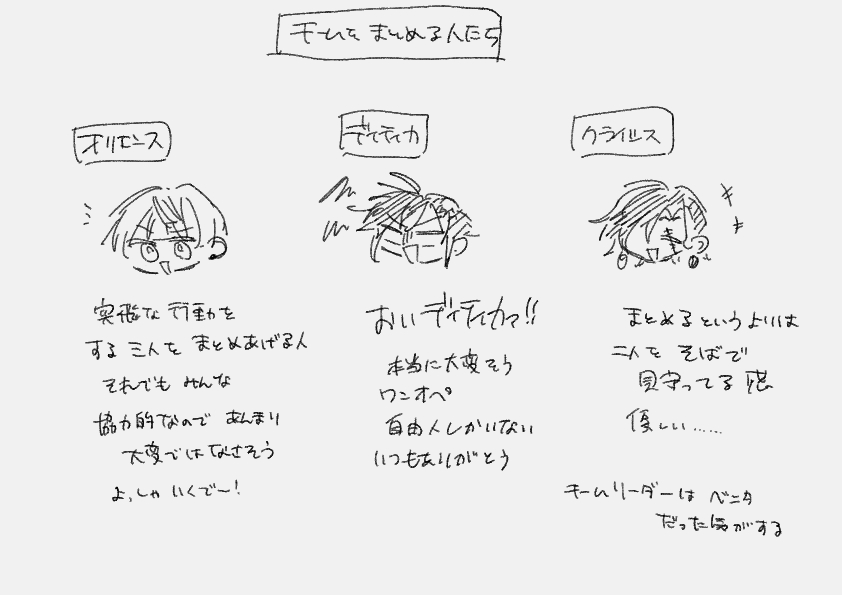 チームをまとめる人たち
オリセンス
ディティカ
クライルス
突飛な行動を
する三人をまとめあげる人
それでもみんな
協力的なのであんまり
大変ではなさそう
よっしゃいくで〜!
おいディティカァ!!
本当に大変そう
ワンオペ
自由人しかいない
いつもありがとう
まとめるというよりは
二人をそばで
見守ってる感
優しい……
チームリーダーはベニタ
だった気がする